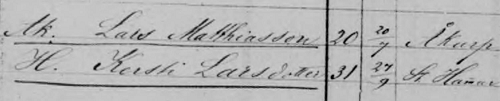 Åk. Lars Matthiasson 20 20/7 Åkarp
H. Kersti Larsdotter 31 27/9 St Hammar